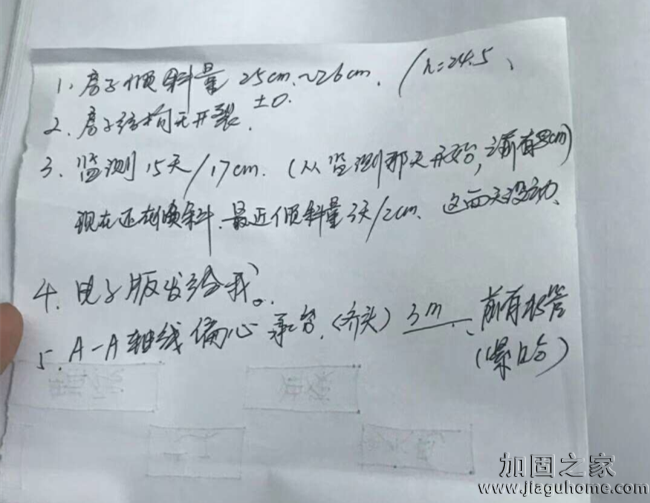 1、房子倾斜量 25cm~26cm. /h=24.5、
2、房子结构无开裂. ±0.
3、监测15天/17cm.(从监测那天开始,之前有8cm)
现在还在倾斜.最近倾斜量3天/2cm.这两天没动.
4、电子版发给我。
5、A-A轴线偏心承台.(齐头)3m、前有水管
(爆)
加固之家
www.jiaguhome.com